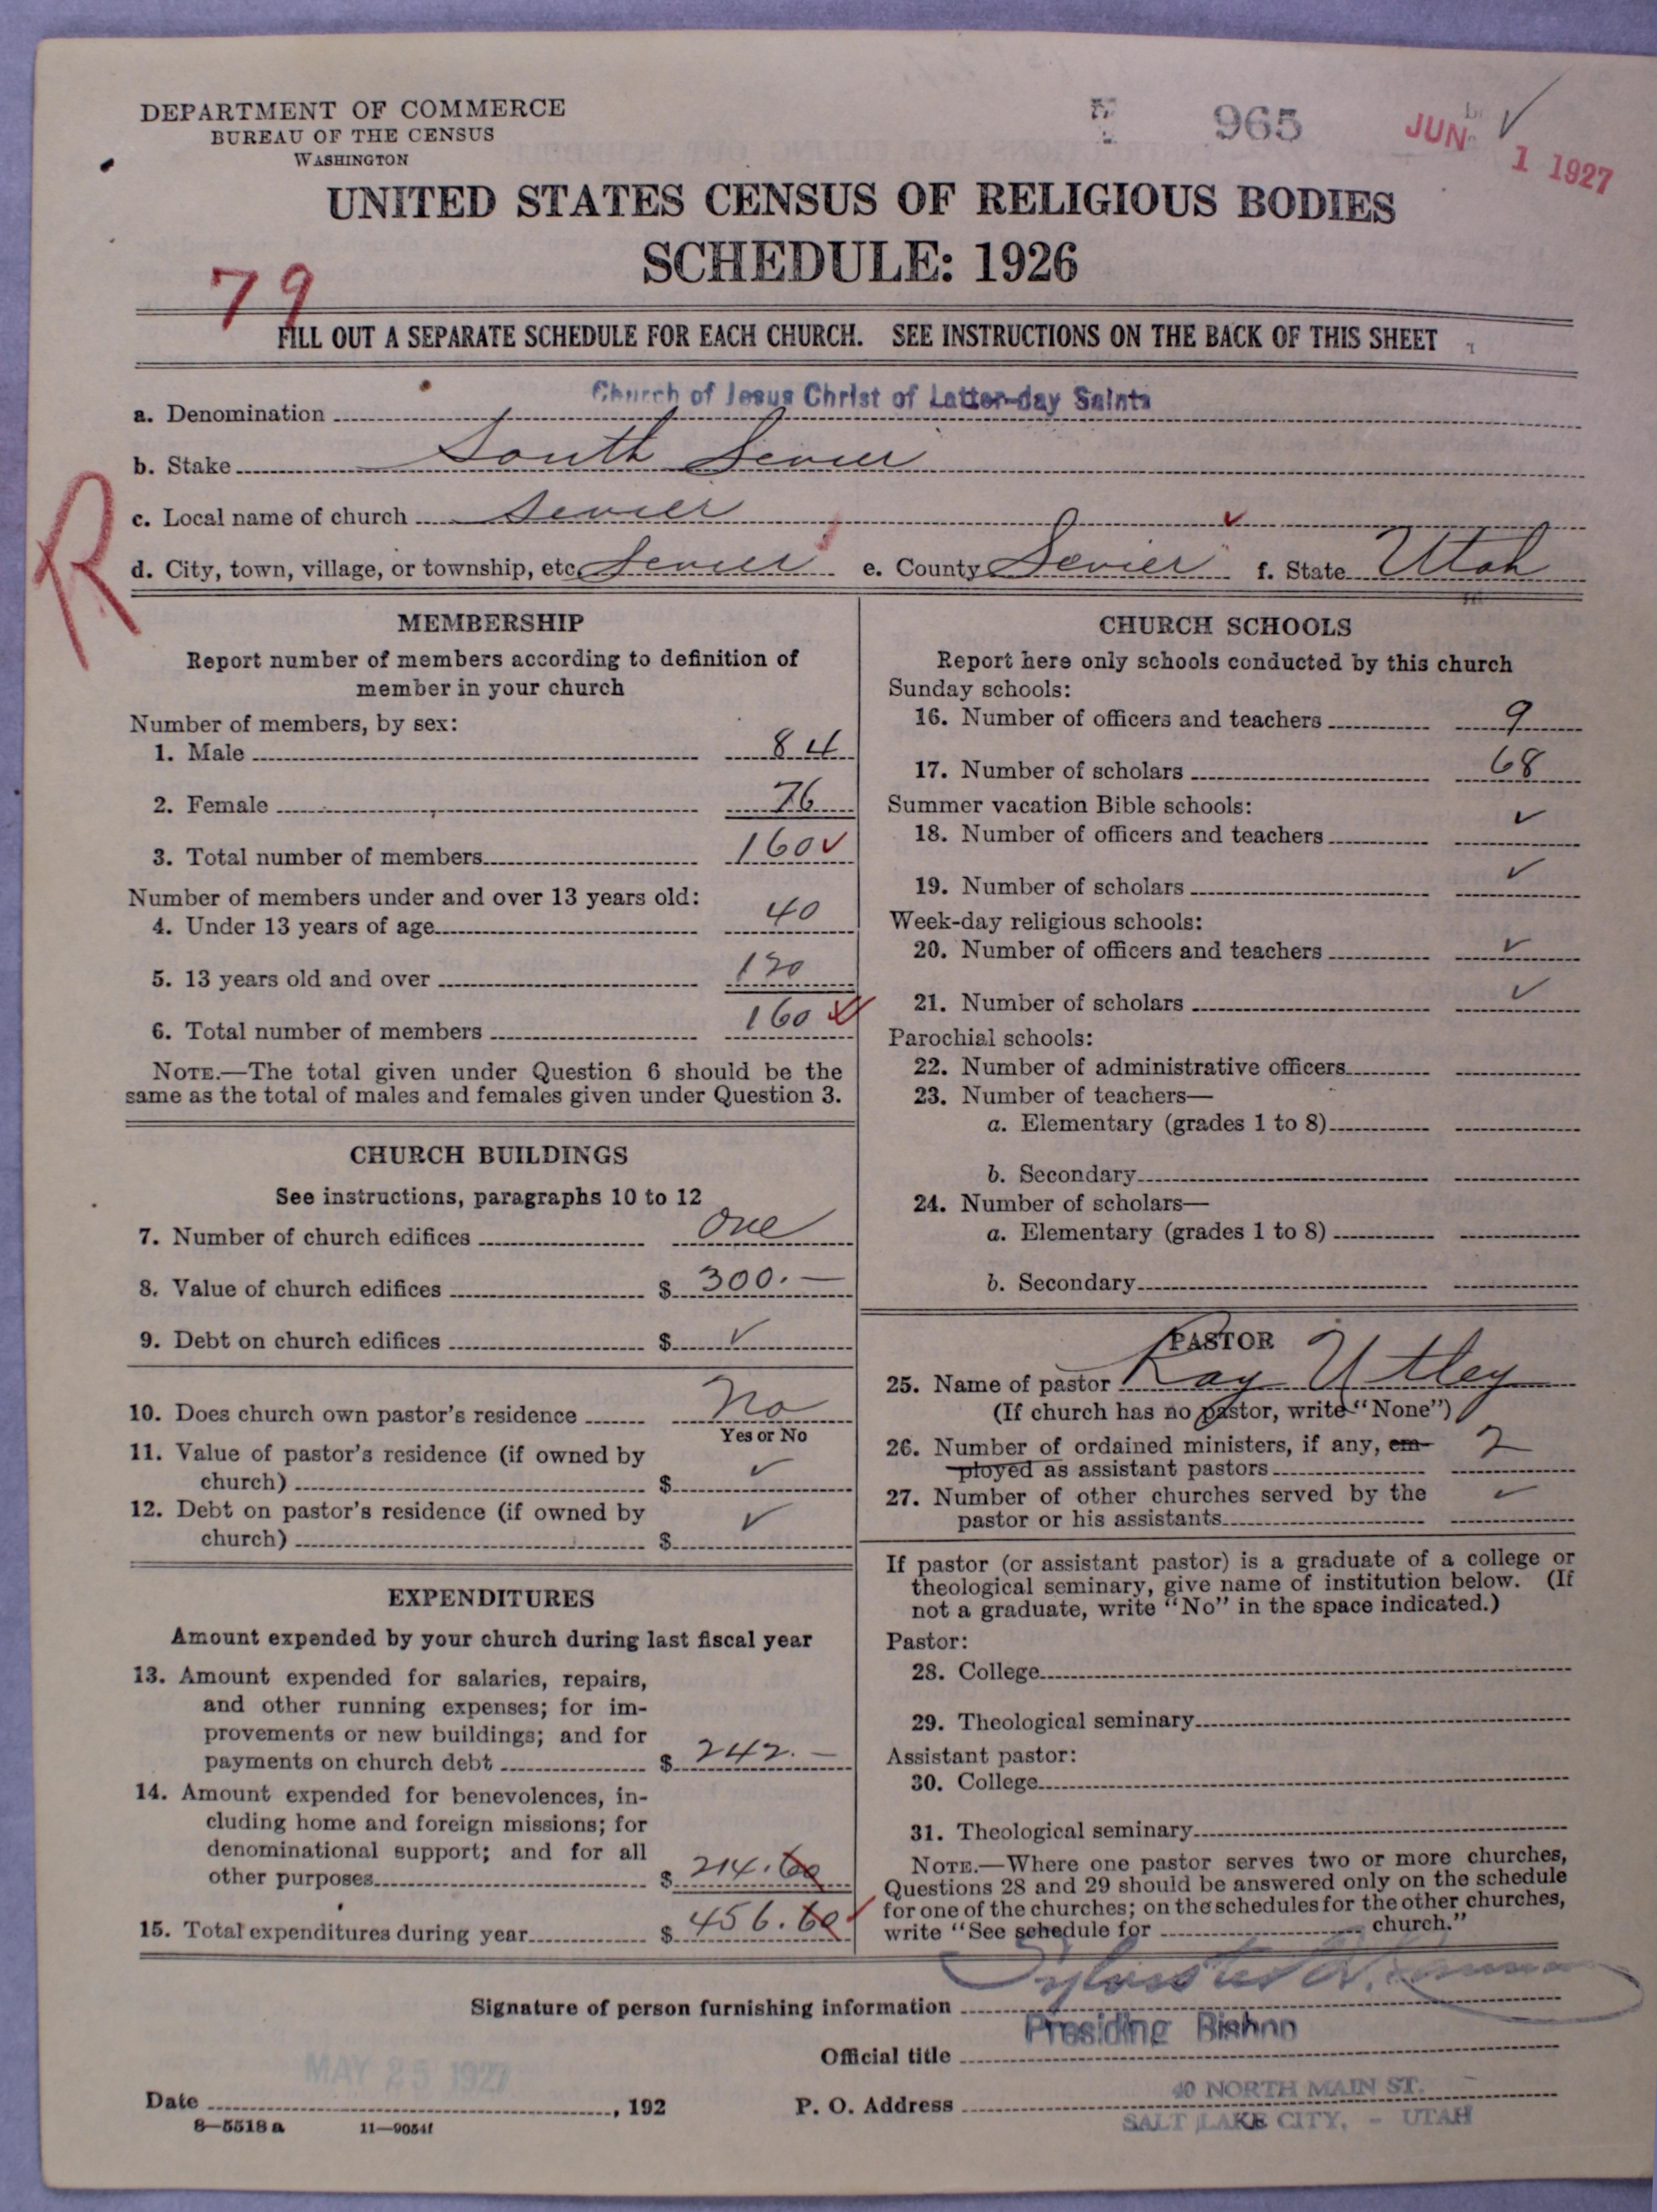 DEPARTMENT OF COMMERCE
BUREAU OF THE CENSUS
WASHINGTON
965
JUN 1 1927
UNITED STATES CENSUS OF RELIGIOUS BODIES
SCHEDULE: 1926
79
FILL OUT A SEPARATE SCHEDULE FOR EACH CHURCH. SEE INSTRUCTIONS ON THE BACK OF THIS SHEET
R
a. Denomination Church of Jesus Christ of Latter-day Saints
b. Stake South Sevier
c. Local name of church Sevier
d. City, town, village, or township, etc. Sevier e. County Sevier f. State Utah
MEMBERSHIP
Report number of members according to definition of
member in your church
Number of members, by sex:
1. Male 84
2. Female 76
3. Total number of members 160 ✓
Number of members under and over 13 years old:
4. Under 13 years of age 40
5. 13 years old and over 120
6. Total number of members 160 ✓
NOTE.—The total given under Question 6 should be the
same as the total of males and females given under Question 3.
CHURCH BUILDINGS
See instructions, paragraphs 10 to 12
7. Number of church edifices One
8. Value of church edifices $ 300.—
9. Debt on church edifices $ ✓
10. Does church own pastor's residence No
Yes or No
11. Value of pastor's residence (if owned by
church) $ ✓
12. Debt on pastor's residence (if owned by
church) $ ✓
EXPENDITURES
Amount expended by your church during last fiscal year
13. Amount expended for salaries, repairs,
and other running expenses; for im-
provements or new buildings; and for
payments on church debt $ 242.—
14. Amount expended for benevolences, in-
cluding home and foreign missions; for
denominational support; and for all
other purposes $ 214.60
15. Total expenditures during year $ 456.60
CHURCH SCHOOLS
Report here only schools conducted by this church
Sunday schools:
16. Number of officers and teachers 9
17. Number of scholars 68
Summer vacation Bible schools:
18. Number of officers and teachers ✓
19. Number of scholars ✓
Week-day religious schools:
20. Number of officers and teachers ✓
21. Number of scholars ✓
Parochial schools:
22. Number of administrative officers
23. Number of teachers—
a. Elementary (grades 1 to 8)
b. Secondary
24. Number of scholars—
a. Elementary (grades 1 to 8)
b. Secondary
PASTOR
25. Name of pastor Ray Utley
(If church has no pastor, write "None")
26. Number of ordained ministers, if any, em- 2
ployed as assistant pastors
27. Number of other churches served by the ✓
pastor or his assistants
If pastor (or assistant pastor) is a graduate of a college or
theological seminary, give name of institution below. (If
not a graduate, write "No" in the space indicated.)
Pastor:
28. College
29. Theological seminary
Assistant pastor:
30. College
31. Theological seminary
NOTE.—Where one pastor serves two or more churches,
Questions 28 and 29 should be answered only on the schedule
for one of the churches; on the schedules for the other churches,
write "See schedule for church."
Signature of person furnishing information Sylvester Q. Cannon
Official title Presiding Bishop
MAY 25 1927
Date , 192 P. O. Address 40 NORTH MAIN ST.
SALT LAKE CITY, - UTAH
8—5518 a 11—9054f